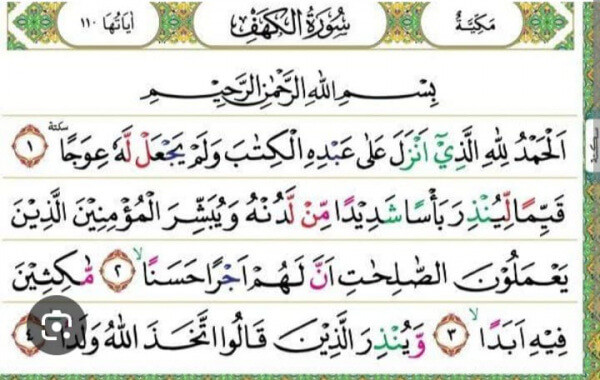 مَكِّيَّةٌ سُوْرَةُ الْكَهْفِ اٰيَاتُهَا ١١٠
بِسْمِ اللّٰهِ الرَّحْمٰنِ الرَّحِيْمِ
اَلْحَمْدُ لِلّٰهِ الَّذِيْٓ اَنْزَلَ عَلٰى عَبْدِهِ الْكِتٰبَ وَلَمْ يَجْعَلْ لَّهٗ عِوَجًا سكتة ١
قَيِّمًا لِّيُنْذِرَ بَأْسًا شَدِيْدًا مِّنْ لَّدُنْهُ وَيُبَشِّرَ الْمُؤْمِنِيْنَ الَّذِيْنَ
يَعْمَلُوْنَ الصّٰلِحٰتِ اَنَّ لَهُمْ اَجْرًا حَسَنًا ۙ ٢ مّٰكِثِيْنَ
فِيْهِ اَبَدًا ۙ ٣ وَّيُنْذِرَ الَّذِيْنَ قَالُوا اتَّخَذَ اللّٰهُ وَلَدًا ٤